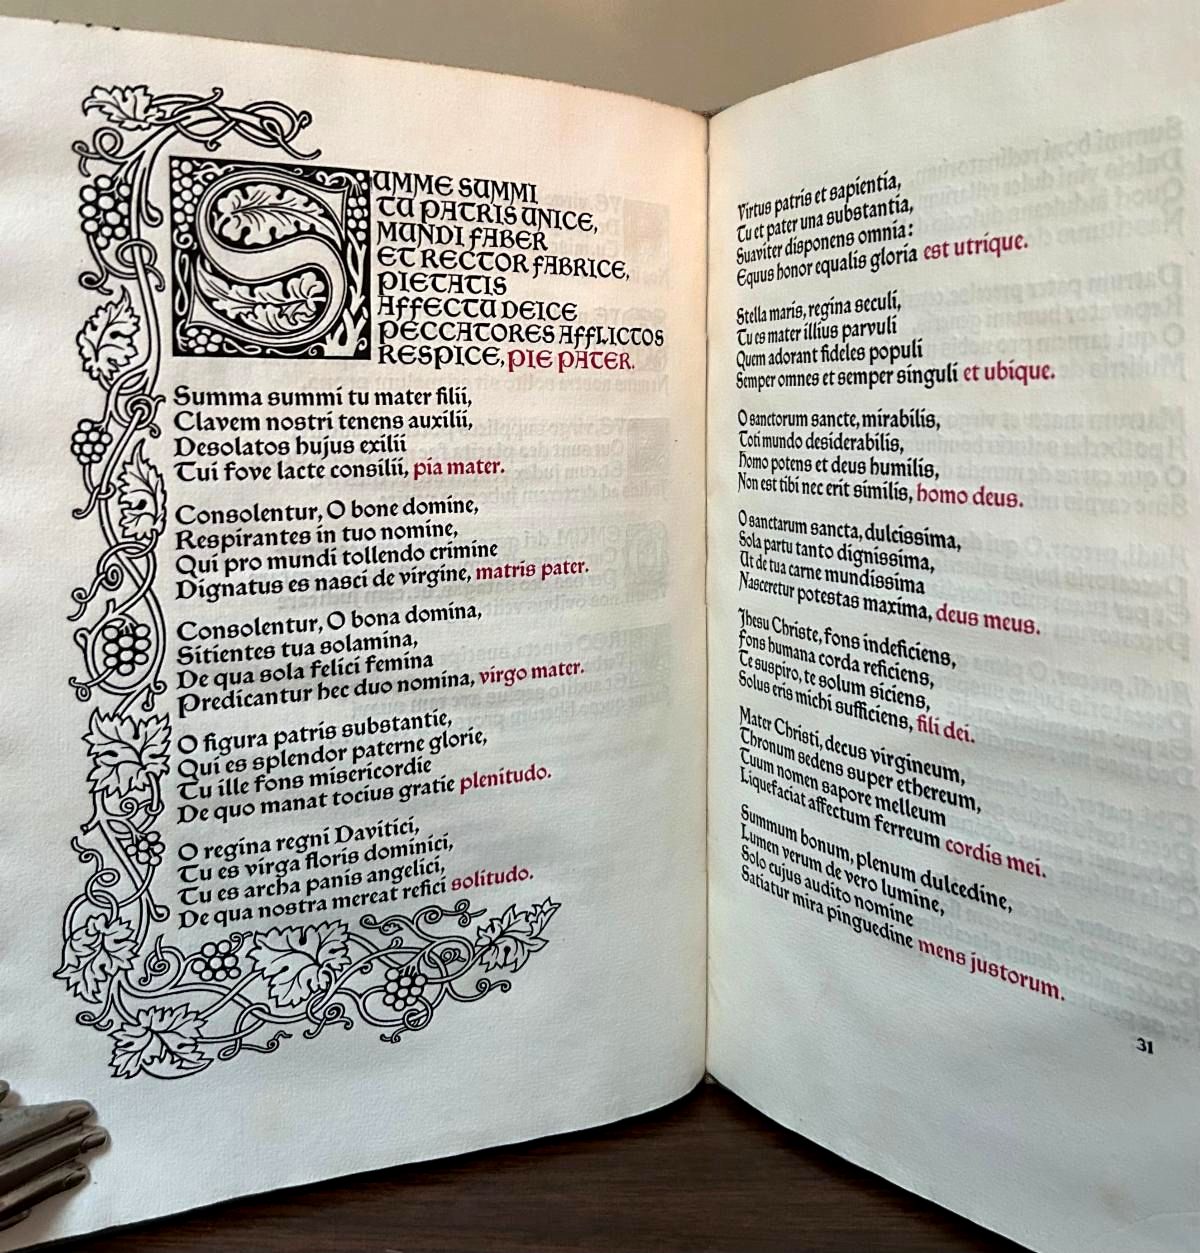 SUMME SUMMI
TU PATRIS UNICE,
MUNDI FABER
ET RECTOR FABRICE,
PIETATIS
AFFECTU DEICE
PECCATORES AFFLICTOS
RESPICE, PIE PATER.
Summa summi tu mater filii,
Clavem nostri tenens auxilii,
Desolatos hujus exilii
Tui fove lacte consilii, pia mater.
Consolentur, O bone domine,
Respirantes in tuo nomine,
Qui pro mundi tollendo crimine
Dignatus es nasci de virgine, matris pater.
Consolentur, O bona domina,
Sitientes tua solamina,
De qua sola felici femina
Predicantur hec duo nomina, virgo mater.
O figura patris substantie,
Qui es splendor paterne glorie,
Tu ille fons misericordie
De quo manat tocius gratie plenitudo.
O regina regni Davitici,
Tu es virga floris dominici,
Tu es archa panis angelici,
De qua nostra mereat refici solitudo.
Virtus patris et sapientia,
Tu et pater una substantia,
Suaviter disponens omnia:
Equus honor equalis gloria est utrique.
Stella maris, regina seculi,
Tu es mater illius parvuli
Quem adorant fideles populi
Semper omnes et semper singuli et ubique.
O sanctorum sancte, mirabilis,
Toti mundo desiderabilis,
Homo potens et deus humilis,
Non est tibi nec erit similis, homo deus.
O sanctarum sancta, dulcissima,
Sola partu tanto dignissima,
Ut de tua carne mundissima
Nasceretur potestas maxima, deus meus.
Jhesu Christe, fons indeficiens,
Fons humana corda reficiens,
Te suspiro, te solum siciens,
Solus eris michi sufficiens, fili dei.
Mater Christi, decus virgineum,
Thronum sedens super ethereum,
Tuum nomen sapore melleum
Liquefaciat affectum ferreum cordis mei.
Summum bonum, plenum dulcedine,
Lumen verum de vero lumine,
Solo cujus audito nomine
Satiatur mira pinguedine mens justorum.
31